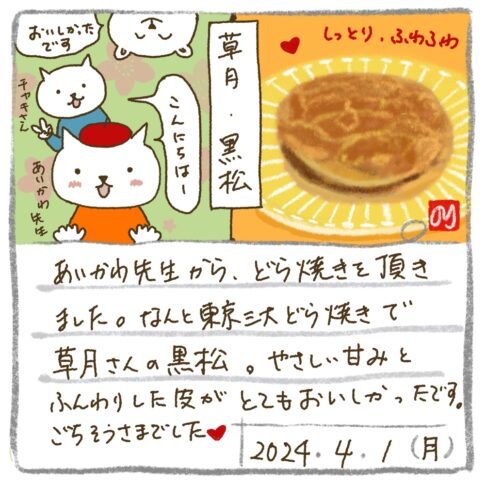 おいしかった
です
チャキさん
こんにちはー
あいかわ先生
草月・黒松
しっとり、ふわふわ
あいかわ先生から、どら焼きを頂き
ました。なんと東京三大どら焼きで
草月さんの黒松。やさしい甘みと
ふんわりした皮がとてもおいしかったです。
ごちそうさまでした
2024.4.1(月)